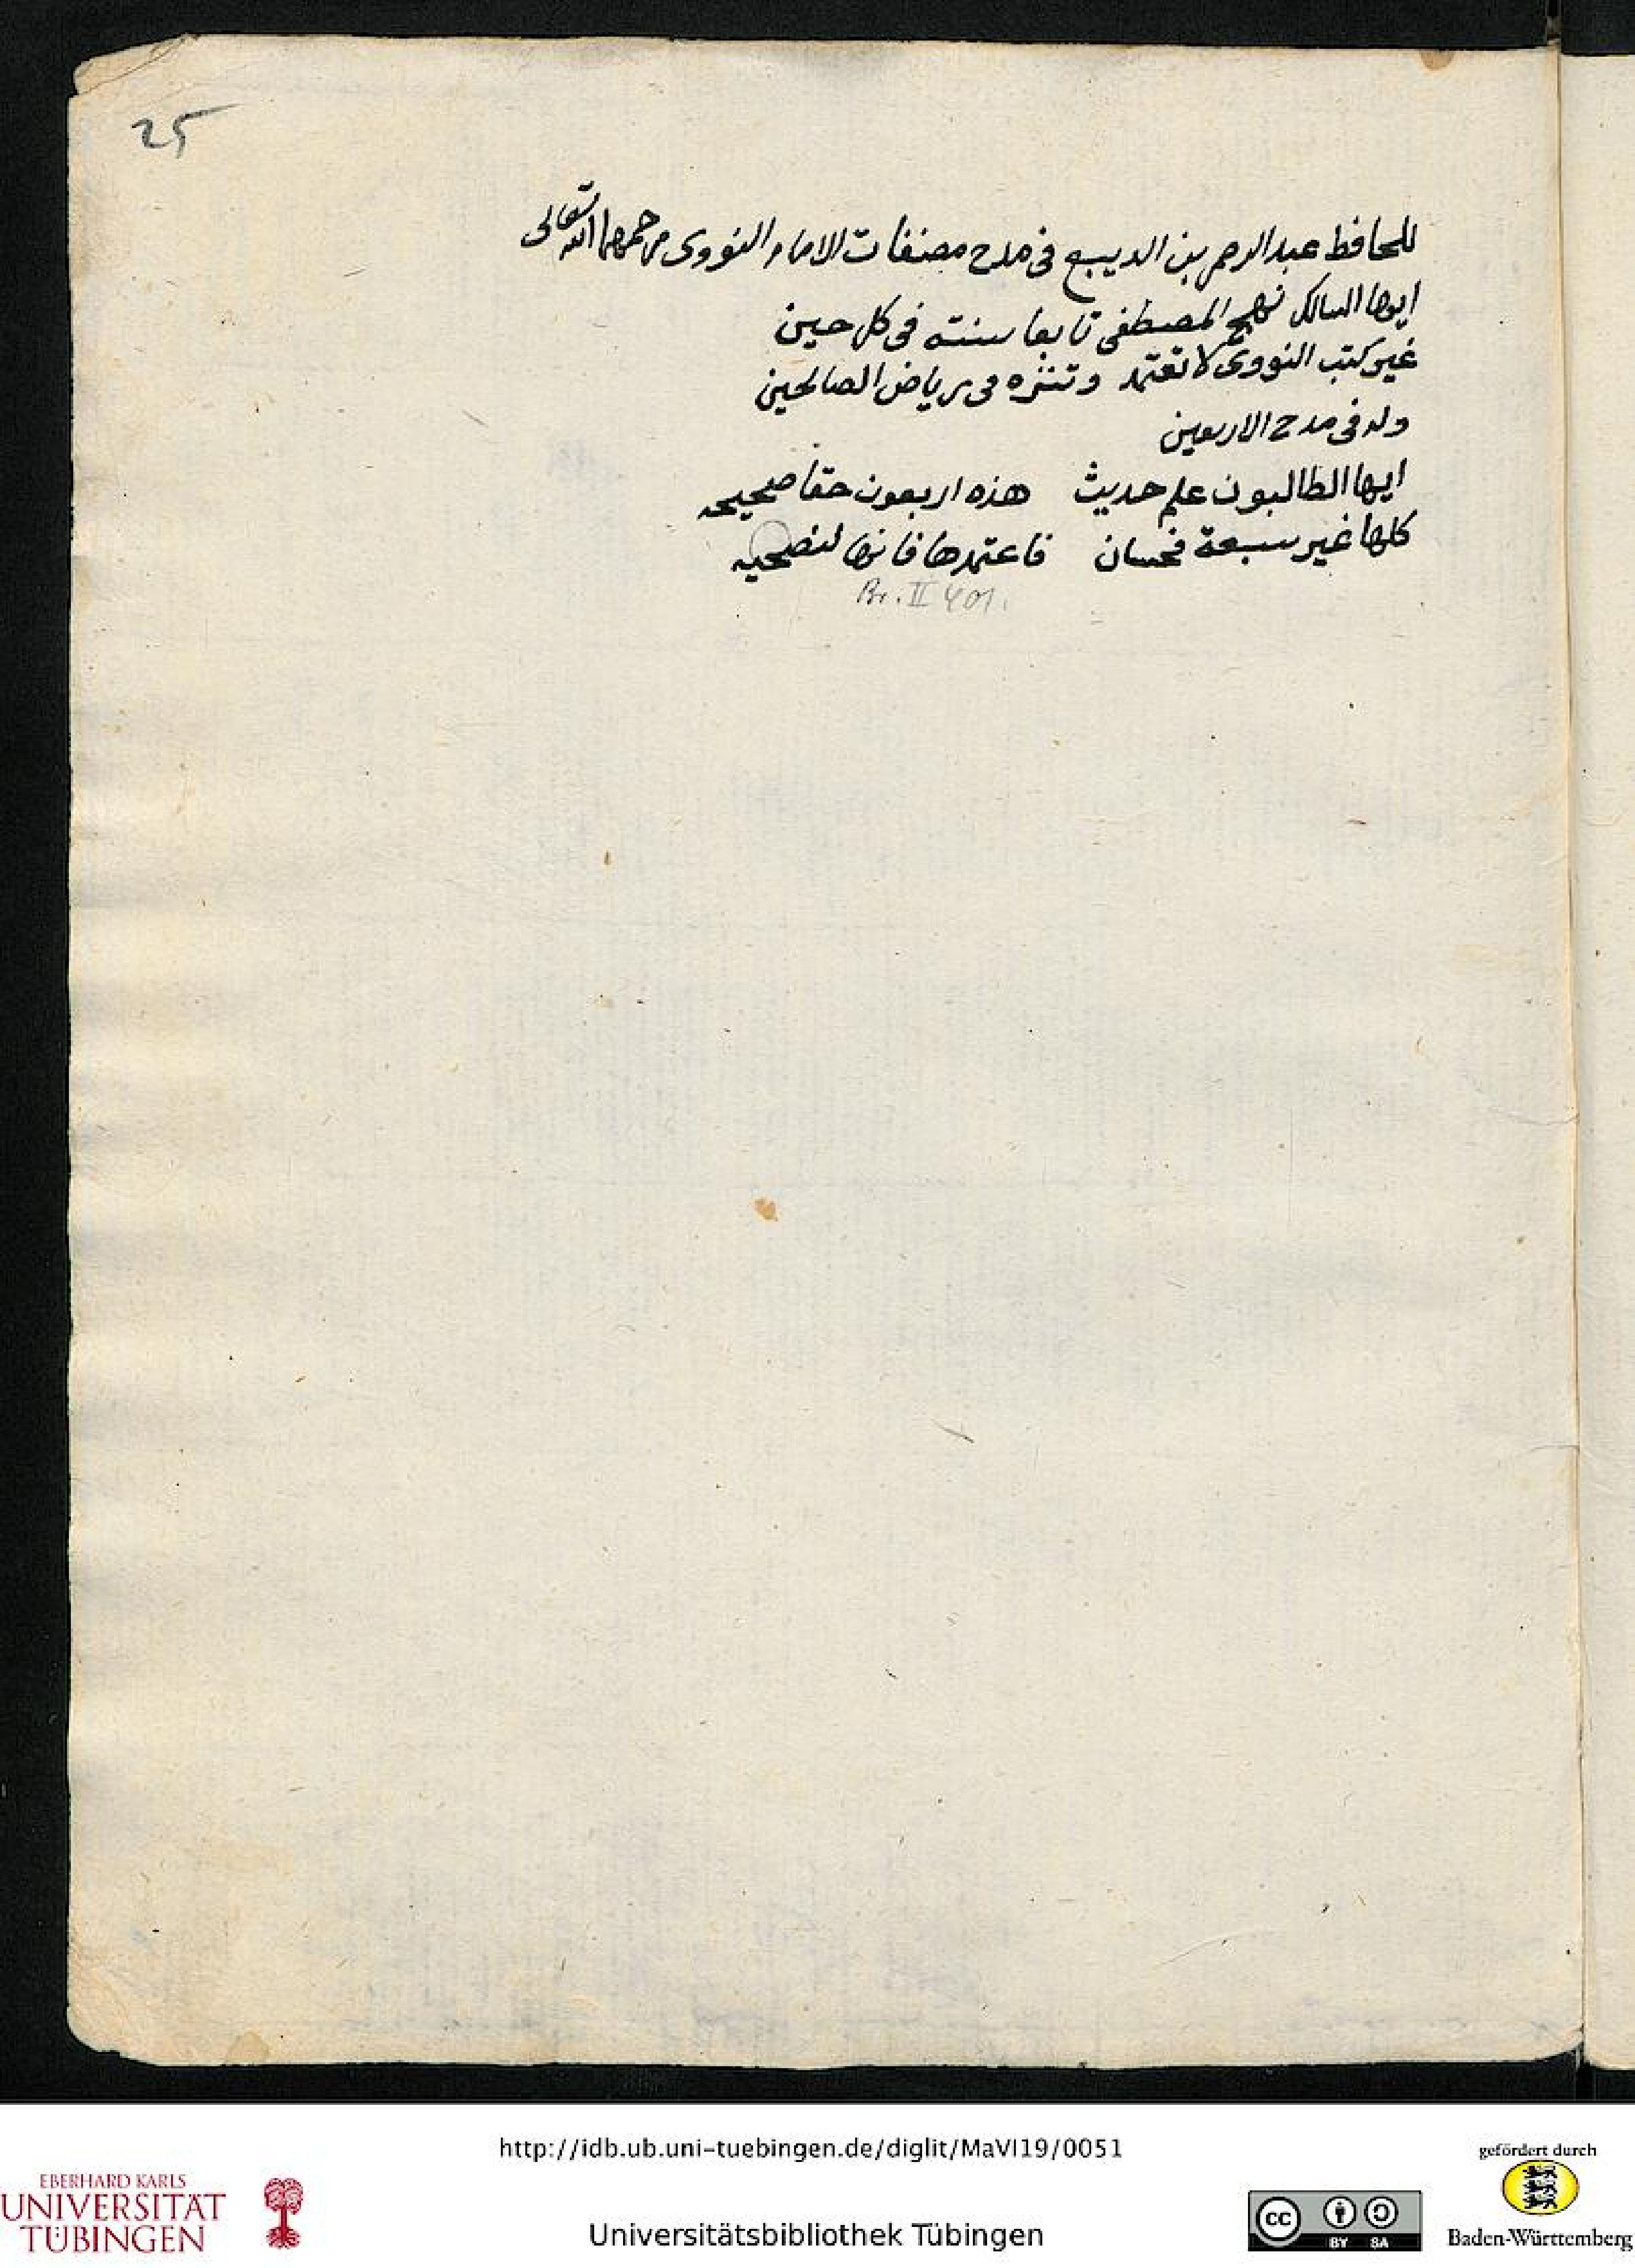 25
للحافظ عبد الرحمن بن الديبع فى مدح مصنفات الامام النووى رحمهما الله تعالى
ايها السالك نهج المصطفى تابعا سنته فى كل حين
غير كتب النووى لا تعتمد وتنزه فى رياض الصالحين
وله فى مدح الاربعين
ايها الطالبون علم حديث هذه اربعون حقا صحيحه
كلها غير سبعة فحسان فاعتمدها فانها لنصحيه
Br. II 401.
http://idb.ub.uni-tuebingen.de/diglit/MaVI19/0051
EBERHARD KARLS
UNIVERSITÄT
TÜBINGEN
Universitätsbibliothek Tübingen
cc BY SA
gefördert durch
Baden-Württemberg